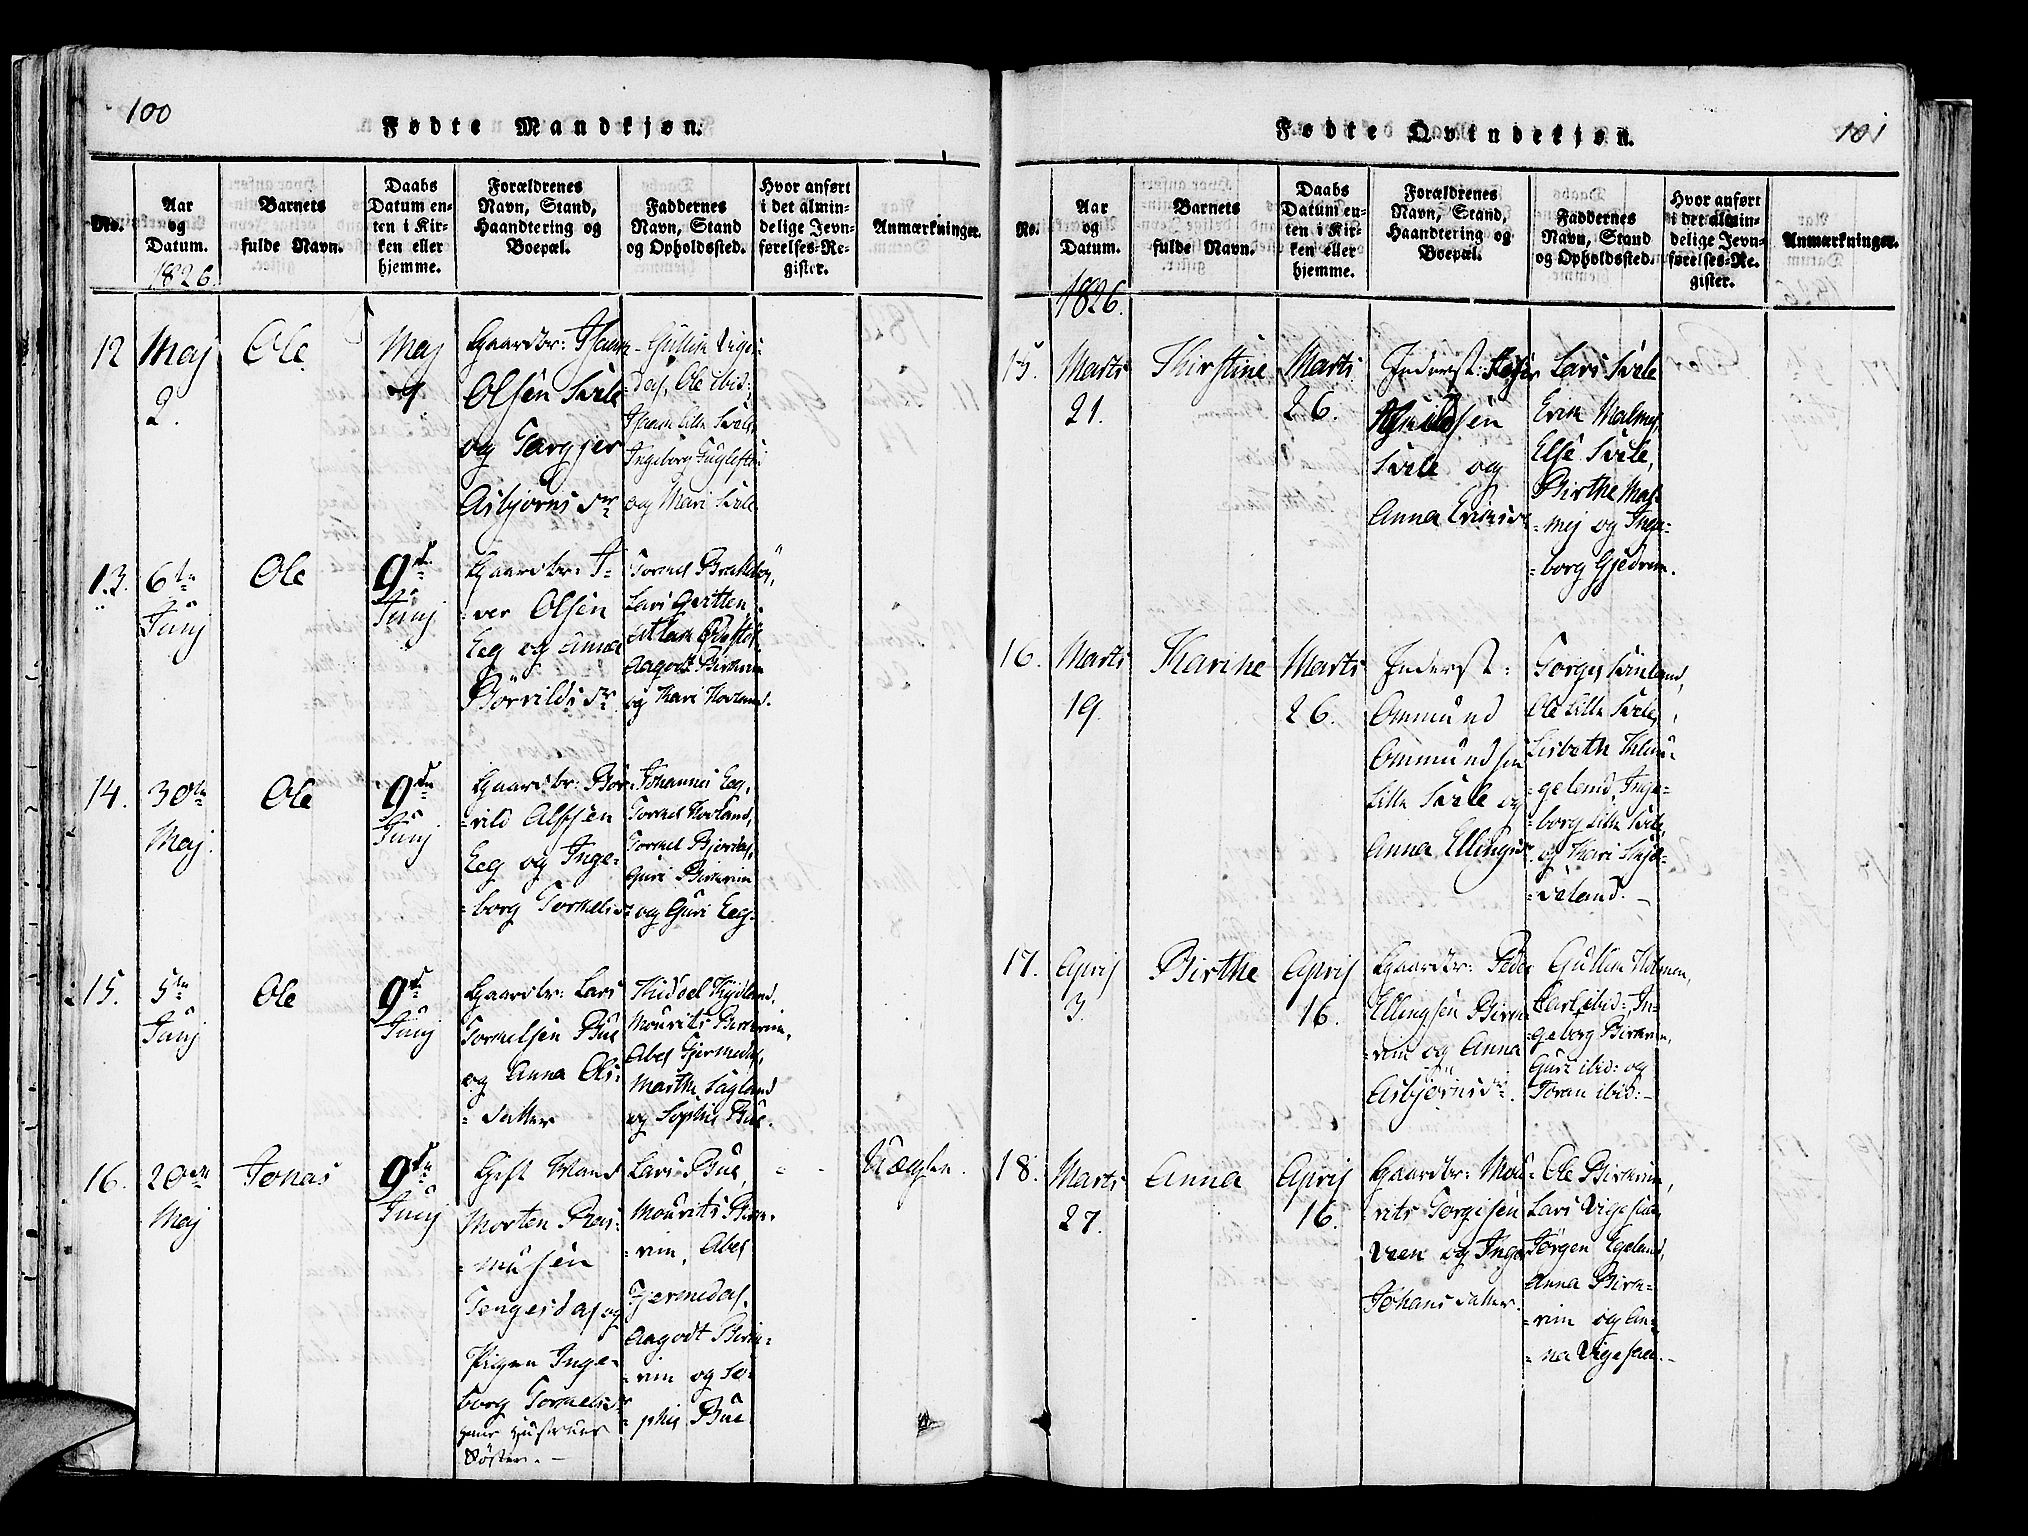 100
Fødte Mandkjøn.
No.
Aar
og
Datum.
1826.
Barnets
fulde Navn.
Daabs
Datum en-
ten i Kir-
ken eller
hjemme.
Forældrenes
Navn, Stand,
Haandtering og
Boepæl.
Faddernes
Navn, Stand
og Opholdssted.
Hvor anført
i det almin-
delige Jevn-
førelses-Re-
gister.
Anmærkninger.
12
Maj
2.
Ole
Maj
4
Gaardbr:
Olsen Svele
og Torgjer
Asbjørns dr
Ole ibid:
Lille Svele
Ingeborg
og Mari Svele
13.
6te
Junj
Ole
9de
Junj
Gaardbr: I-
-ver Olsen
Eeg og Anna
Børvilds dr
Tormel
Lars
Aagodt Birkrem
og Kari Hovland.
14.
30te
Maj.
Ole
9de
Junj
Gaardbr: Bør-
-vild Alfsen
Eeg og Inge-
-borg Tormels dr
Johannes Eeg,
Tormel Hovland,
Tormel Bjordal,
Guri Birkrem
og Guri Eeg.
15.
5te
Junj
Ole
9de
Junj
Gaardbr: Lars
Tormelsen Bue
og Anna Ols-
-datter
Kidsel Kydland,
Mourits Birkrem,
Abel Gjermedal,
Marthe Sagland
og Sophie Bue.
16.
20de
Maj
Jonas
9de
Junj
Gift Mand
Morten Ras-
-musen
Tengesdal og
Pigen Inge-
borg Tormels dr
hans Hustrues
Søster. -
Lars Bue,
Mourits Birk-
-rem, Abel
Gjermedal,
Aagodt Birk-
-rem og So-
-phie Bue
Uægte.
101
Fødte Qvindekjøn.
No.
Aar
og
Datum.
1826.
Barnets
fulde Navn.
Daabs
Datum en-
ten i Kir-
ken eller
hjemme.
Forældrenes
Navn, Stand,
Haandtering og
Boepæl.
Faddernes
Navn, Stand
og Opholdssted.
Hvor anført
i det almin-
delige Jevn-
førelses-Re-
gister.
Anmærkninger.
15.
Marts
21.
Kirstine
Marts
26.
Inderst:
Svele og
Anna Eriks dr
Lars Svele
Erik Malmej,
Else Svele,
Birthe Mal-
-mej og Inge-
-borg Gjedrem.
16.
Marts
19.
Karine
Marts
26.
Inderst:
Ommund
Ommundsen
Lille Svele og
Anna Ellings dr
Torges
Ole Lille Svele,
Lisbeth
-geland, Inge-
-borg Lille Svele,
og Kari Skjæ-
-veland. -
17.
Aprij
3.
Birthe
Aprij
16.
Gaardbr: Peder
Ellingsen Birk-
-rem og Anna
Asbjørns dr.
Gullik Holmen,
Carl ibid:, In-
-geborg Birkrem,
Guri ibid: og
Toran ibid: -
18.
Marts
27.
Anna
Aprij
16.
Gaardbr: Mou-
rits Torgisen
Veen og Inger
Johans datter.
Ole Birkrem,
Lars Vigesaae,
Jørgen Egeland,
Anna Birk-
-rem og An-
-na Vigesaae. -